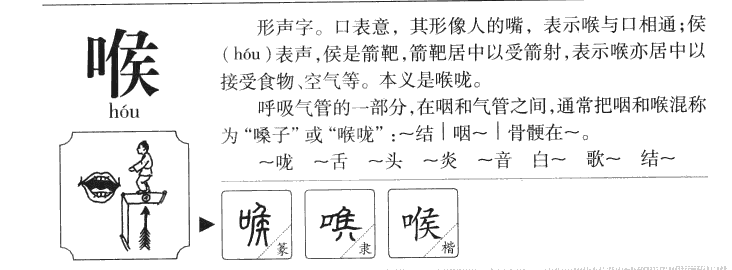 喉
hóu
形声字。口表意，其形像人的嘴，表示喉与口相通；侯
（hóu）表声，侯是箭靶，箭靶居中以受箭射，表示喉亦居中以
接受食物、空气等。本义是喉咙。
呼吸气管的一部分，在咽和气管之间，通常把咽和喉混称
为“嗓子”或“喉咙”：～结｜咽～｜骨骾在～。
～咙 ～舌 ～头 ～炎 ～音 白～ 歌～ 结～
喉 篆
喉 隶
喉 楷